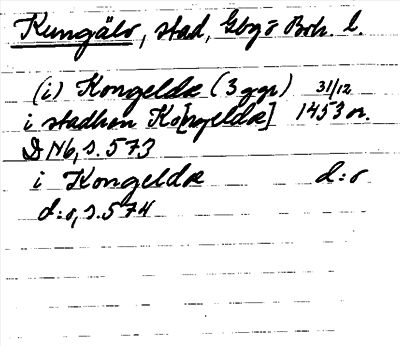 Kungälv, stad, Gbg o Boh. l.
(i) Kongeldæ (3 ggr) 31/12
i stadhen Ko[ngeldæ] 1453 or.
DN 6, s. 573
i Kongeldæ d:o
d:o, s. 574